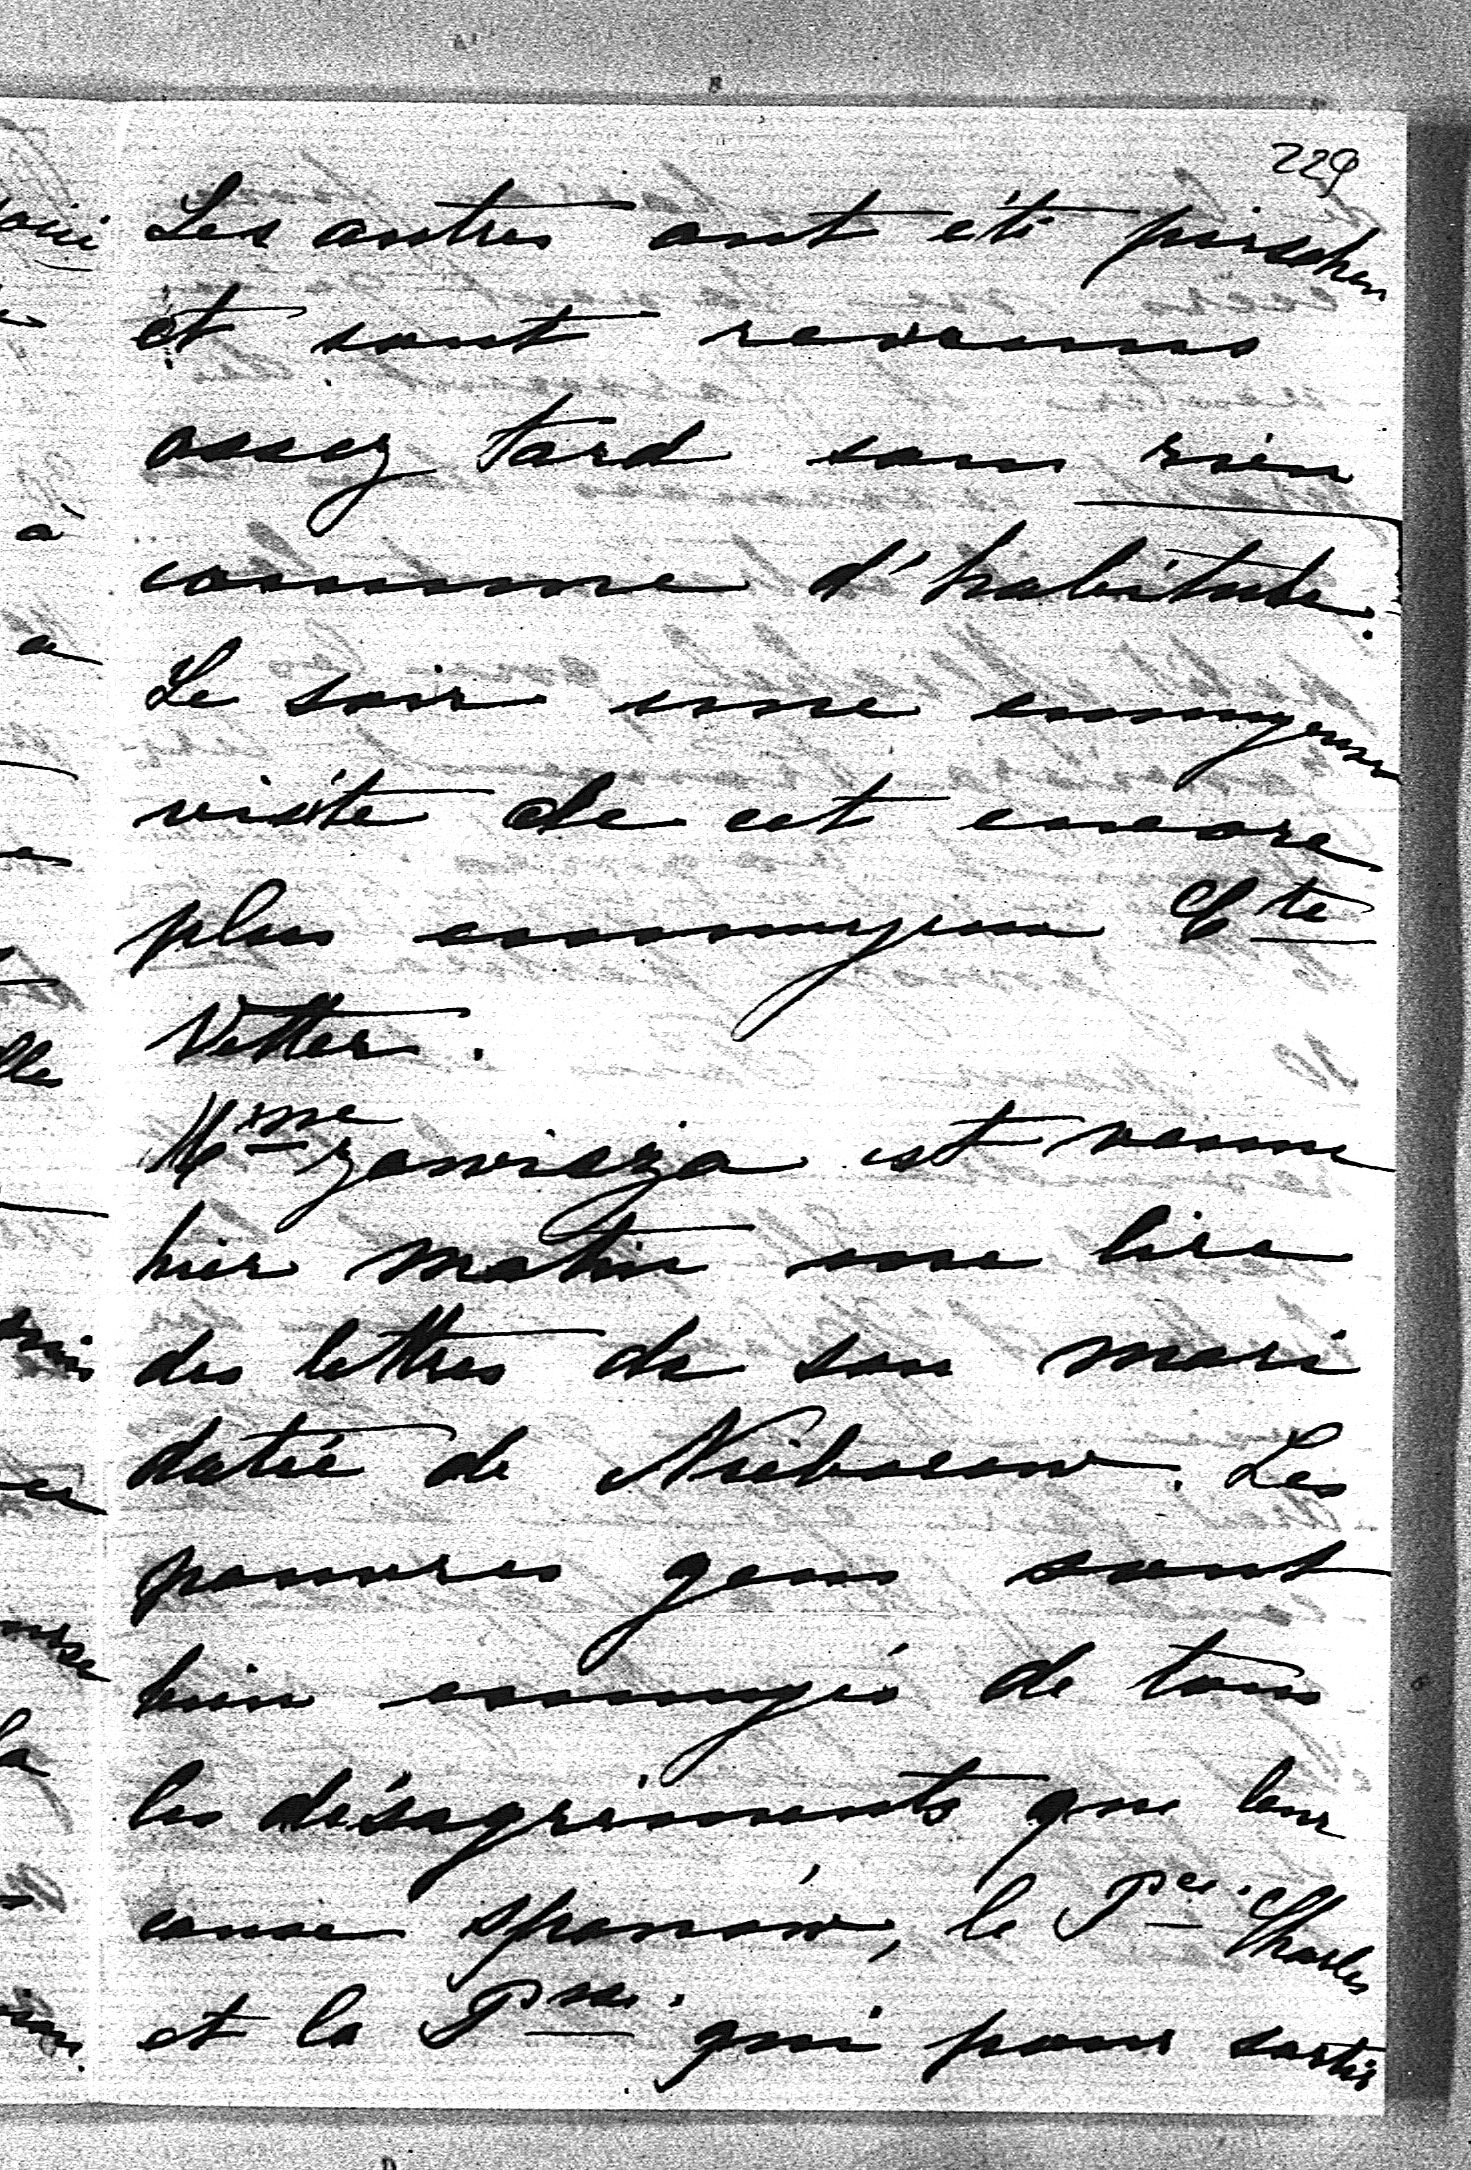 229
Les autres ont été pirschen
et sont revenus
assez tard sans rien
comme d'habitude.
Le soir une ennuyeuse
visite de cet encore
plus ennuyeux Cte
Vetter.
Mme Zawisza est venue
hier matin me lire
des lettres de son mari
datée de Nieborow. Les
pauvres gens sont
bien ennuyés de tous
les désagréments que leur
cause Spanów, le Pce. Charles
et la Psse. qui pour sortir